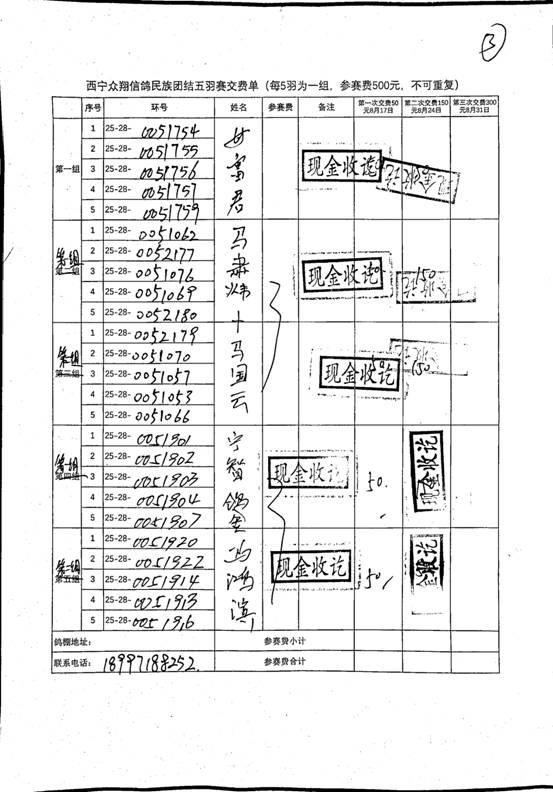 3
西宁众翔信鸽民族团结五羽赛交费单（每5羽为一组，参赛费500元，不可重复）
序号 环号 姓名 参赛费 备注 第一次交费50元8月17日 第二次交费150元8月24日 第三次交费300元8月31日
第一组
1 25-28-0051754
2 25-28-0051755
3 25-28-0051756
4 25-28-0051757
5 25-28-0051759
富君
现金收讫
现金收讫
第一组
第二组
1 25-28-0051062
2 25-28-0052177
3 25-28-0051076
4 25-28-0051069
5 25-28-0052180
马肃炜
现金收讫
150
第一组
第三组
1 25-28-0052179
2 25-28-0051070
3 25-28-0051057
4 25-28-0051053
5 25-28-0051066
十马国云
现金收讫
150
第一组
第四组
1 25-28-0051901
2 25-28-0051902
3 25-28-0051903
4 25-28-0051904
5 25-28-0051907
宁智鸽舍
现金收讫
50.
现金收讫
第一组
第五组
1 25-28-0051920
2 25-28-0051922
3 25-28-0051914
4 25-28-0051913
5 25-28-0051916
冯鸿滨
现金收讫
50
鸽棚地址： 参赛费小计
联系电话：18997188252. 参赛费合计